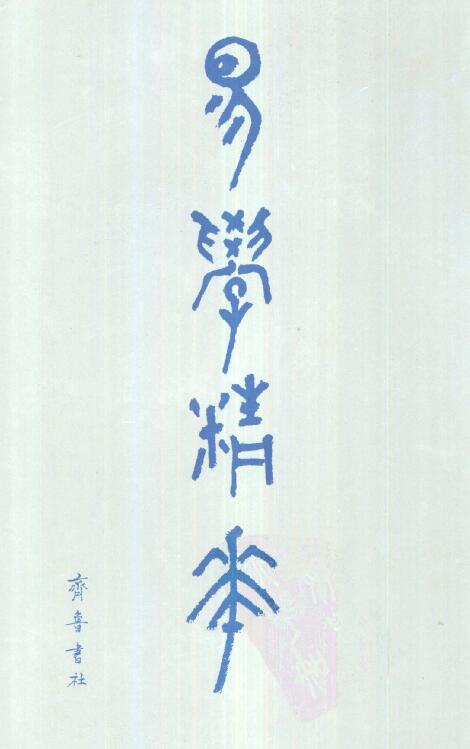 易學精華
齊魯書社